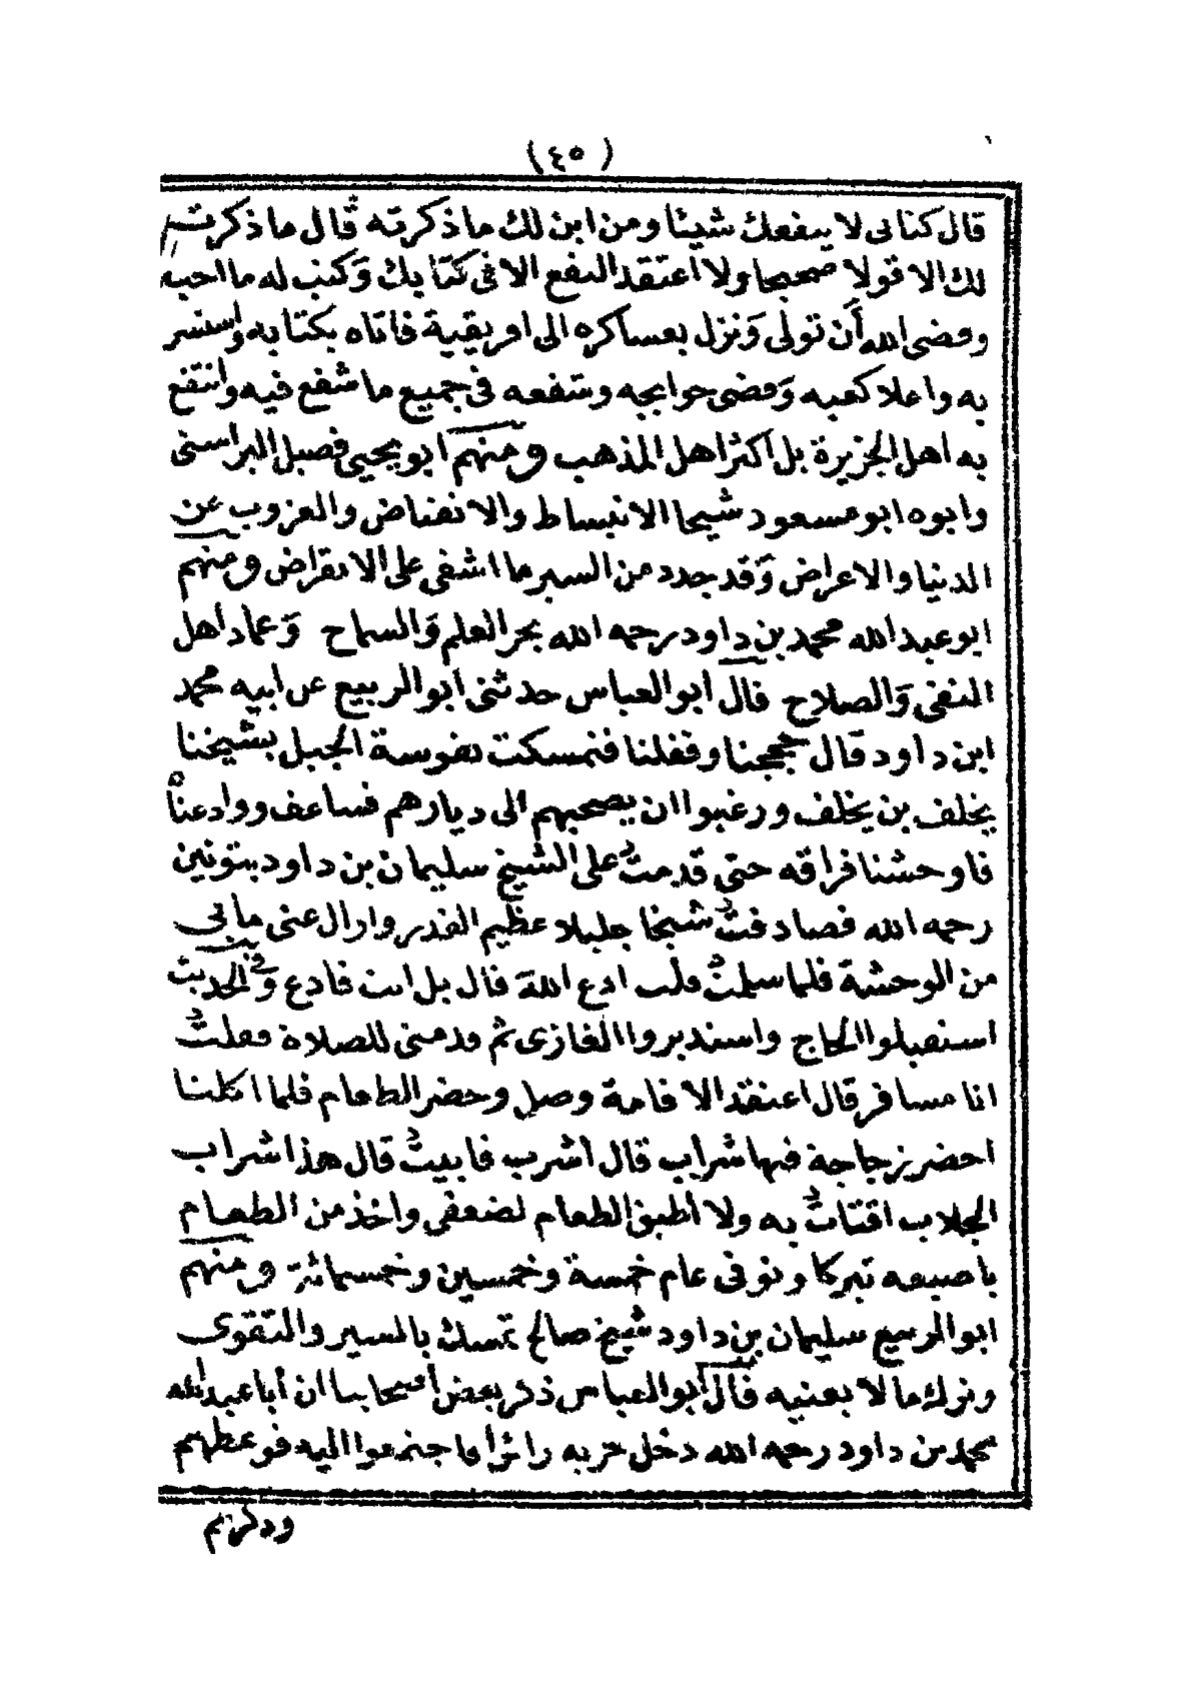 (٤٥)
قال كتابى لا ينفعك شيئا ومن اين لك ما ذكرته قال ما ذكرت
لك الا قولا صحيحا ولا اعتقد النفع الا فى كتابك وكتب له ما احبه
وقضى الله أن تولى ونزل بعساكره الى افريقية فاتاه بكتابه واستسر
به واعلا كعبه وقضى حوايجه وشفعه فى جميع ما شفع فيه وانتفع
به اهل الجزيرة بل اكثر اهل المذهب ومنهم ابو يحيى فصيل البراسنى
وابوه ابو مسعود شيخا الانبساط والانقباض والعزوب عن
الدنيا والاعراض وقد جدد من السير ما اشفى على الانقراض ومنهم
ابو عبد الله محمد بن داود رحمه الله بحر العلم والسماح وعماد أهل
التقى والصلاح قال ابو العباس حدثنى ابو الربيع عن ابيه محمد
ابن داود قال حججنا وقفلنا فتمسكت نفوسة الجبل بشيخنا
يخلف بن يخلف ورغبوا ان يصحبهم الى ديارهم فساعف ووادعنا
فاوحشنا فراقه حتى قدمت على الشيخ سليمان بن داود بتونين
رحمه الله فصادفت شيخا جليلا عظيم القدر وازال عنى ما بى
من الوحشة فلما سلمت قلت ادع الله قال بل انت فادع وفى الحديث
استقبلوا الحاج واستدبروا الغازى ثم قدمنى للصلاة فقلت
انا مسافر قال اعتقد الاقامة وصل وحضر الطعام فلما اكلنا
احضر زجاجة فيها شراب قال اشرب فابيت قال هذا شراب
الجلاب اقتات به ولا أطيق الطعام لضعفى واخذ من الطعام
باصبعه تبركا وتوفى عام خمسة وخمسين وخمسمائة ومنهم
ابو الربيع سليمان بن داود شيخ صالح تمسك بالسير والتقوى
وترك ما لا يعنيه قال أبو العباس ذكر بعض أصحابنا ان أبا عبد الله
محمد بن داود رحمه الله دخل جربه زائرا فاجتمعوا اليه فوعظهم
وذكرهم